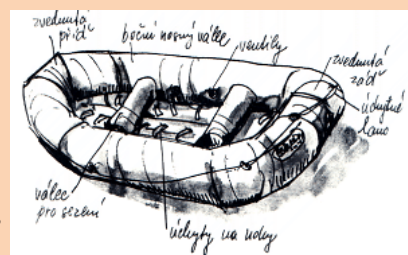 zvednutá
příď
boční nosný válec
ventily
zvednutá
záď
úchytné
lano
válec
pro sezení
úchyty na nohy